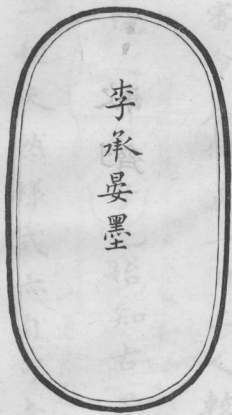 李承晏墨